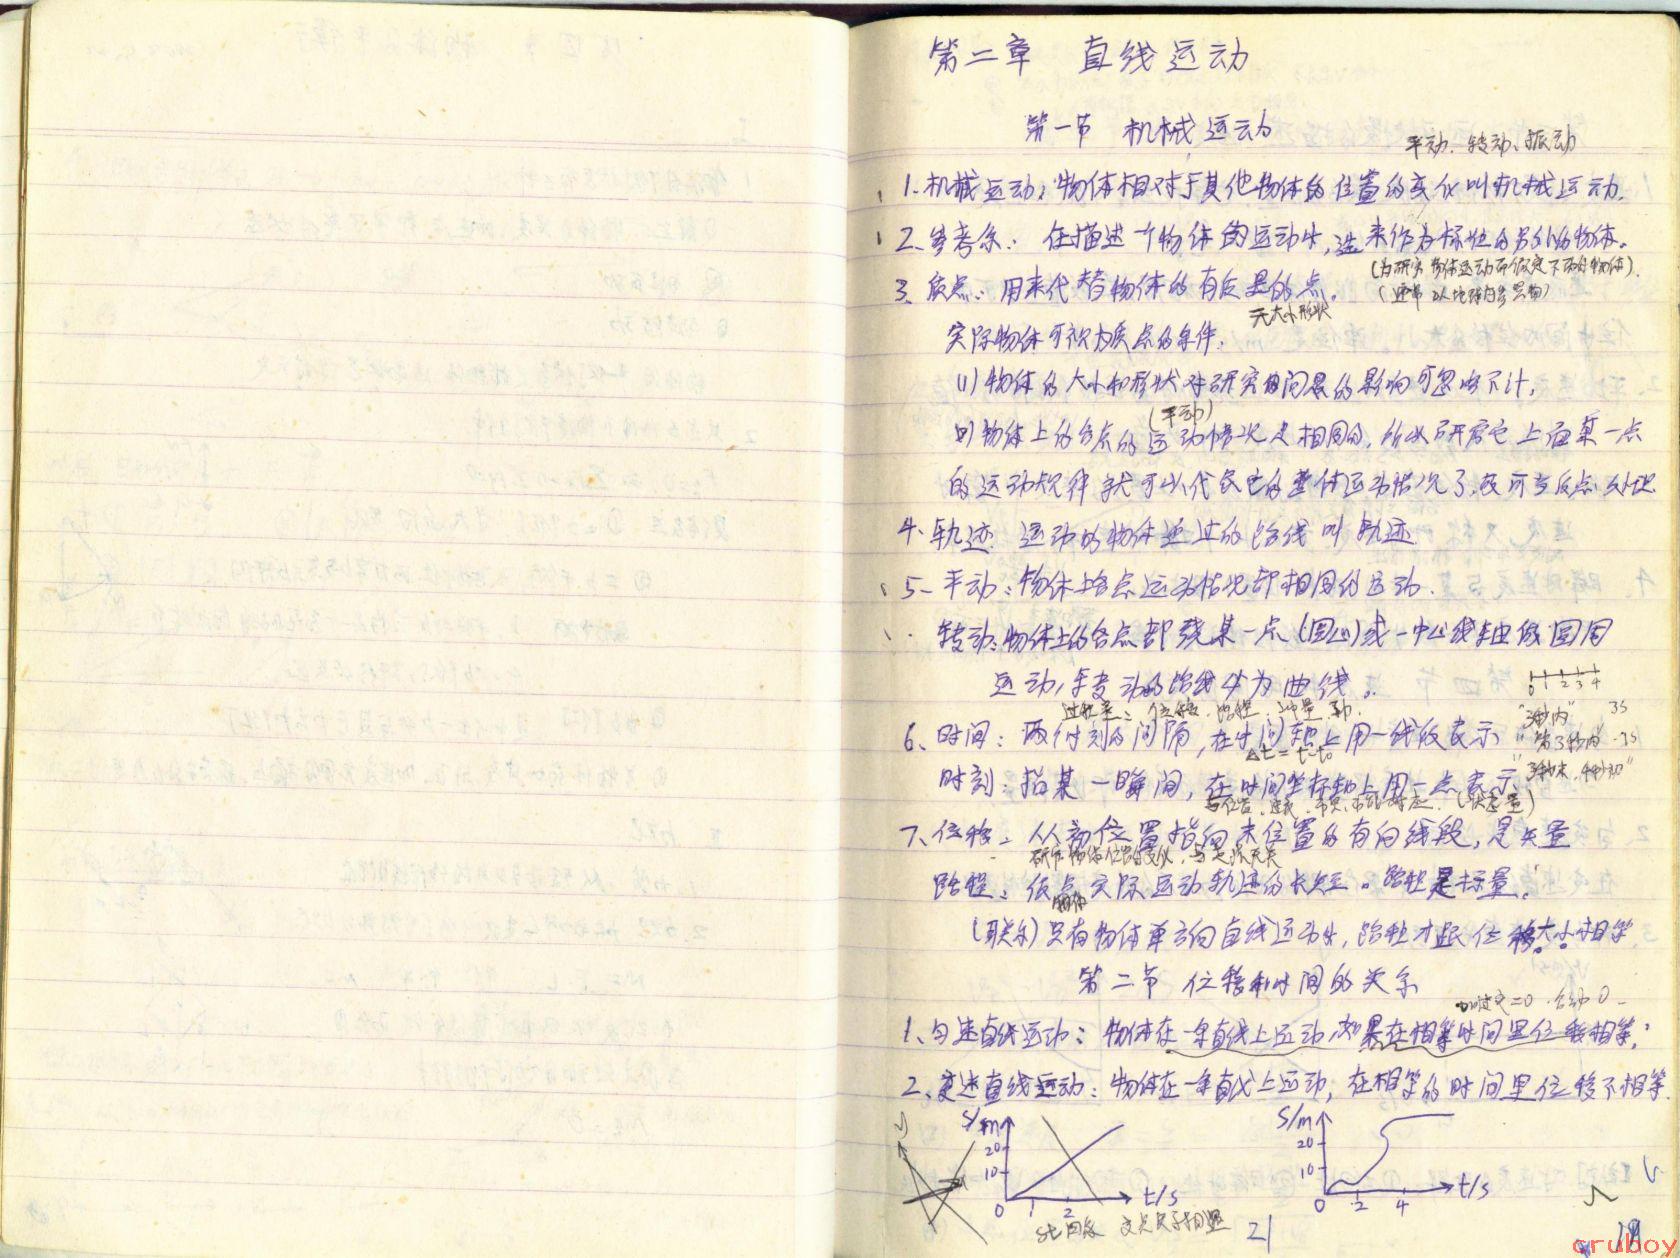 第二章 直线运动
第一节 机械运动
平动、转动、振动
1、机械运动：物体相对于其他物体的位置的变化叫机械运动.
2、参考系： 在描述一个物体的运动时，选来作为标准的另外的物体。
(为研究物体运动而假定不动的物体).
3、质点： 用来代替物体的有质量的点。
(通常以地球为参照物)
无大小形状
实际物体可视为质点的条件.
(1) 物体的大小和形状对研究的问题的影响可忽略不计.
(平动)
(2) 物体上的各点的运动情况是相同的，所以研究它上面某一点
的运动规律就可以代表它的整体运动情况了，故可当质点处理
4、轨迹 运动的物体通过的路线叫轨迹
5、平动：物体上各点运动情况都相同的运动.
转动：物体上的各点都绕某一点(圆心)或一中心线轴做圆周
运动，转动的路线为曲线。
0 1 2 3 4
过程量：位移、路程、冲量、功.
"3秒内" 3s
6、时间： 两时刻的间隔，在时间轴上用一线段表示
"第3秒内" 1s
△t = t-t₀
"3秒末，4秒初"
时刻：指某一瞬间，在时间坐标轴上用一点表示
(状态量)
7、位移：从初位置指向末位置的有向线段，是矢量
路程：质点实际运动轨迹的长短。路程是标量.
物体
(联系) 只有物体单方向直线运动时，路程才跟位移大小相等
第二节 位移和时间的关系
加速度=0 合力0
1、匀速直线运动：物体在一条直线上运动，如果在相等时间里位移相等；
2、变速直线运动：物体在一条直线上运动，在相等的时间里位移不相等.
S/m
20
10
0 1 2 t/s
S/m
20
10
0 2 4 t/s
交点表示相遇
21
19
cruboy